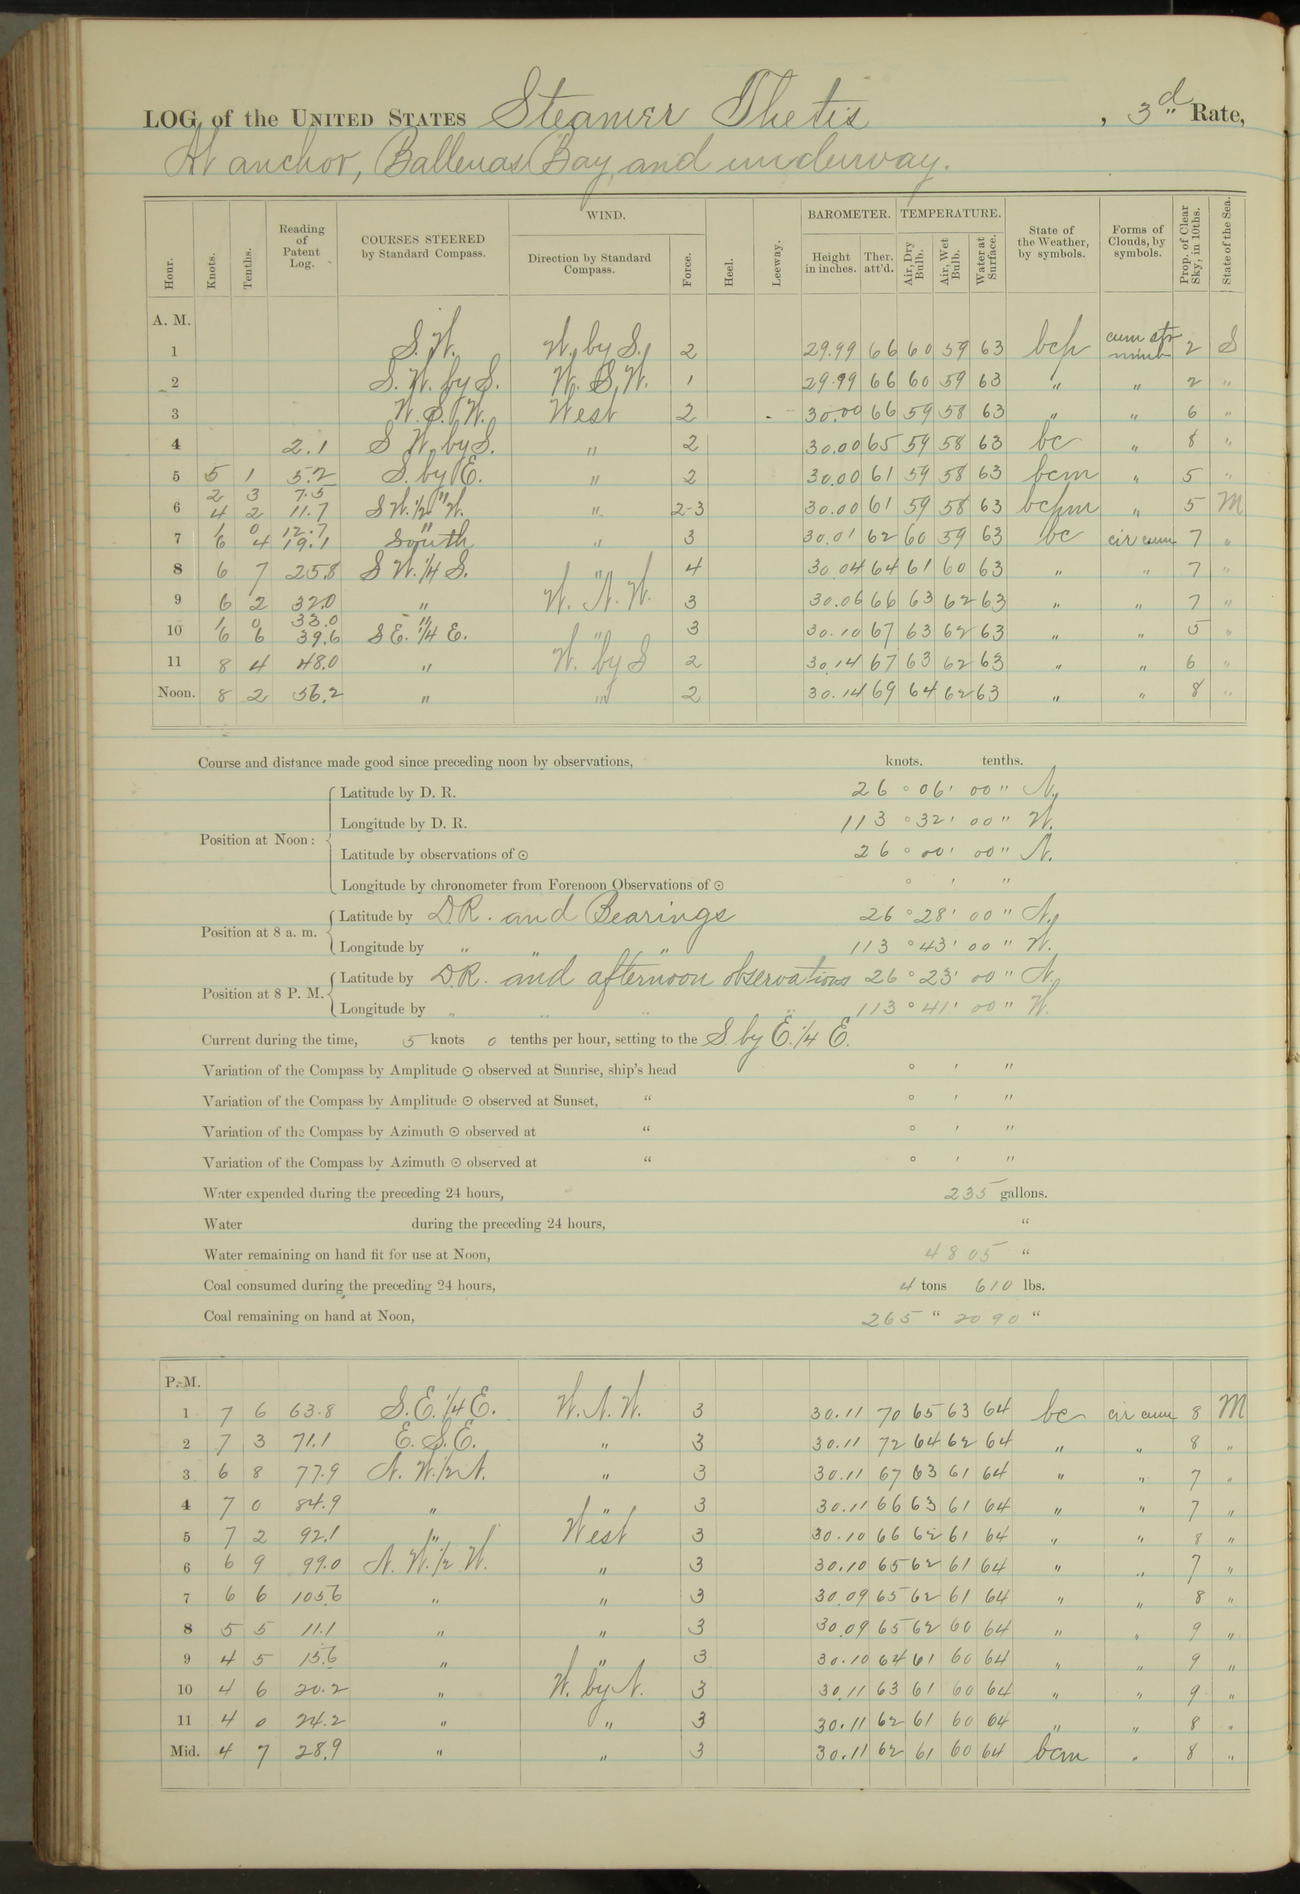 LOG of the UNITED STATES Steamer Thetis , 3d Rate,
At anchor, Ballenas Bay, and underway.
Hour. Knots. Tenths. Reading of Patent Log. COURSES STEERED by Standard Compass. WIND. Direction by Standard Compass. Force. Heel. Leeway. BAROMETER. Height in inches. Ther. att'd. TEMPERATURE. Air, Dry Bulb. Air, Wet Bulb. Water at Surface. State of the Weather, by symbols. Forms of Clouds, by symbols. Prop. of Clear Sky, in 10ths. State of the Sea.
A. M.
1 S. W. W. by S. 2 29.99 66 60 59 63 bcp cum str nimb 2 S
2 S. W. by S. W. S. W. 1 29.99 66 60 59 63 " " 2 "
3 W. S. W. West 2 30.00 66 59 58 63 " " 6 "
4 2.1 S W. by S. " 2 30.00 65 59 58 63 bc " 8 "
5 5 1 5.2 S. by E. " 2 30.00 61 59 58 63 bcm " 5 "
2 3 7.5 "
6 4 2 11.7 S W. 1/2 W. " 2-3 30.00 61 59 58 63 bcpm " 5 M
1 0 12.7 "
7 6 4 19.1 South " 3 30.01 62 60 59 63 bc cir cum 7 "
8 6 7 25.8 S W. 1/4 S. " 4 30.04 64 61 60 63 " " 7 "
9 6 2 32.0 " W. N. W. 3 30.06 66 63 62 63 " " 7 "
1 0 33.0 "
10 6 6 39.6 S E. 1/4 E. " 3 30.10 67 63 62 63 " " 5 "
11 8 4 48.0 " W. by S 2 30.14 67 63 62 63 " " 6 "
Noon. 8 2 56.2 " " 2 30.14 69 64 62 63 " " 8 "
Course and distance made good since preceding noon by observations, knots. tenths.
Position at Noon:
Latitude by D. R. 26 ° 06 ' 00 " N.
Longitude by D. R. 113 ° 32 ' 00 " W.
Latitude by observations of ⊙ 26 ° 00 ' 00 " N.
Longitude by chronometer from Forenoon Observations of ⊙ ° ' "
Position at 8 a. m.
Latitude by D.R. and Bearings 26 ° 28 ' 00 " N.
Longitude by " " " 113 ° 43 ' 00 " W.
Position at 8 P. M.
Latitude by D.R. and afternoon observations 26 ° 23 ' 00 " N.
Longitude by " " " " 113 ° 41 ' 00 " W.
Current during the time, 5 knots 0 tenths per hour, setting to the S. by E. 1/4 E.
Variation of the Compass by Amplitude ⊙ observed at Sunrise, ship's head ° ' "
Variation of the Compass by Amplitude ⊙ observed at Sunset, " ° ' "
Variation of the Compass by Azimuth ⊙ observed at " ° ' "
Variation of the Compass by Azimuth ⊙ observed at " ° ' "
Water expended during the preceding 24 hours, 235 gallons.
Water during the preceding 24 hours, "
Water remaining on hand fit for use at Noon, 4805 "
Coal consumed during the preceding 24 hours, 4 tons 610 lbs.
Coal remaining on hand at Noon, 265 " 2090 "
P. M.
1 7 6 63.8 S. E. 1/4 E. W. N. W. 3 30.11 70 65 63 64 bc cir cum 8 M
2 7 3 71.1 E. S. E. " 3 30.11 72 64 62 64 " " 8 "
3 6 8 77.9 N. W. 1/2 N. " 3 30.11 67 63 61 64 " " 7 "
4 7 0 84.9 " " 3 30.11 66 63 61 64 " " 7 "
5 7 2 92.1 " West 3 30.10 66 62 61 64 " " 8 "
6 6 9 99.0 N. W. 1/2 W. " 3 30.10 65 62 61 64 " " 7 "
7 6 6 105.6 " " 3 30.09 65 62 61 64 " " 8 "
8 5 5 11.1 " " 3 30.09 65 62 60 64 " " 9 "
9 4 5 15.6 " " 3 30.10 64 61 60 64 " " 9 "
10 4 6 20.2 " W. by N. 3 30.11 63 61 60 64 " " 9 "
11 4 0 24.2 " " 3 30.11 62 61 60 64 " " 8 "
Mid. 4 7 28.9 " " 3 30.11 62 61 60 64 bcm " 8 "